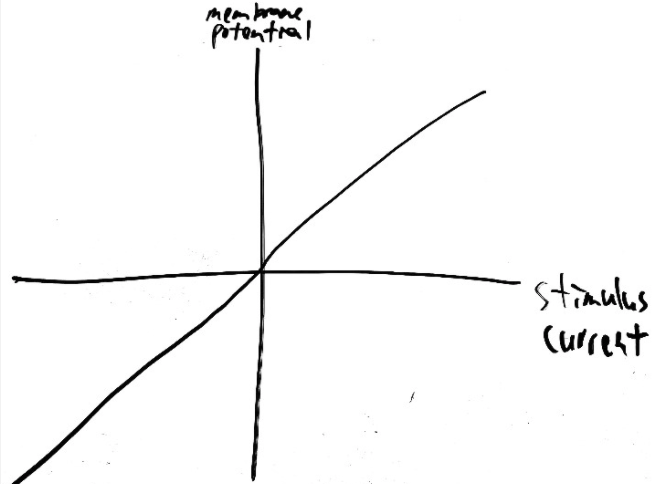 membrane
potential
stimulus
current